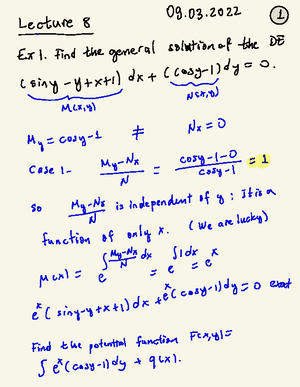 Lecture 8 09.03.2022 1
Ex 1. Find the general solution of the DE
(siny - y + x + 1) dx + (cosy - 1) dy = 0.
M(x,y) N(x,y)
My = cosy - 1 ≠ Nx = 0
Case 1- (My - Nx)/N = (cosy - 1 - 0)/(cosy - 1) = 1
so (My - Nx)/N is independent of y : It is a
function of only x. (We are lucky)
μ(x) = e^(∫ (My - Nx)/N dx) = e^(∫1dx) = e^x
e^x (siny - y + x + 1) dx + e^x (cosy - 1) dy = 0 exact
Find the potential function F(x,y) =
∫ e^x (cosy - 1) dy + q(x).